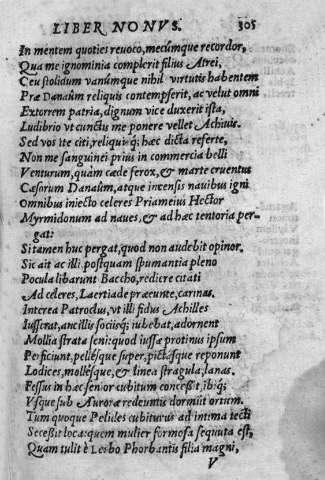 LIBER NONVS. 305
In mentem quoties reuoco, mecúmque recordor,
Qua me ignominia complerit filius Atrei,
Ceu stolidum vanúmque nihil virtutis habentem
Præ Danaûm reliquis contempserit, ac velut omni
Extorrem patria, dignum vice duxerit ista,
Ludibrio vt cunctis me ponere vellet Achiuis.
Sed vos ite citi, reliuiq; hæc dicta referte,
Non me sanguinei prius in commercia belli
Venturum, quam cæde ferox, & marte cruentus
Cæsorum Danaûm, atque incensis nauibus igni
Omnibus iniecto celeres Priameius Hector
Myrmidonum ad naues, & ad hæc tentoria per-
gat:
Si tamen huc pergat, quod non audebit opinor.
Sic ait ac illi, postquam spumantia pleno
Pocula libarunt Baccho, rediere citati
Ad celeres, Laertiade præeunte, carinas.
Interea Patroclus, vt illi fidus Achilles
Iusserat, ancillis sociisq; iubebat, adornent
Mollia strata seni: quod iussæ protinus ipsum
Perficiunt, pellésque super, pictásque reponunt
Lodices, mollésque, & linea stragula, lanas.
Fessus in hæc senior cubitum concessit, ibiq;
Vsque sub Auroræ redeuntis dormiit ortum.
Tum quoque Pelides cubiturus ad intima tecti
Secessit loca: quem mulier formosa sequuta est,
Quam tulit è Lesbo Phorbantis filia magni,
V